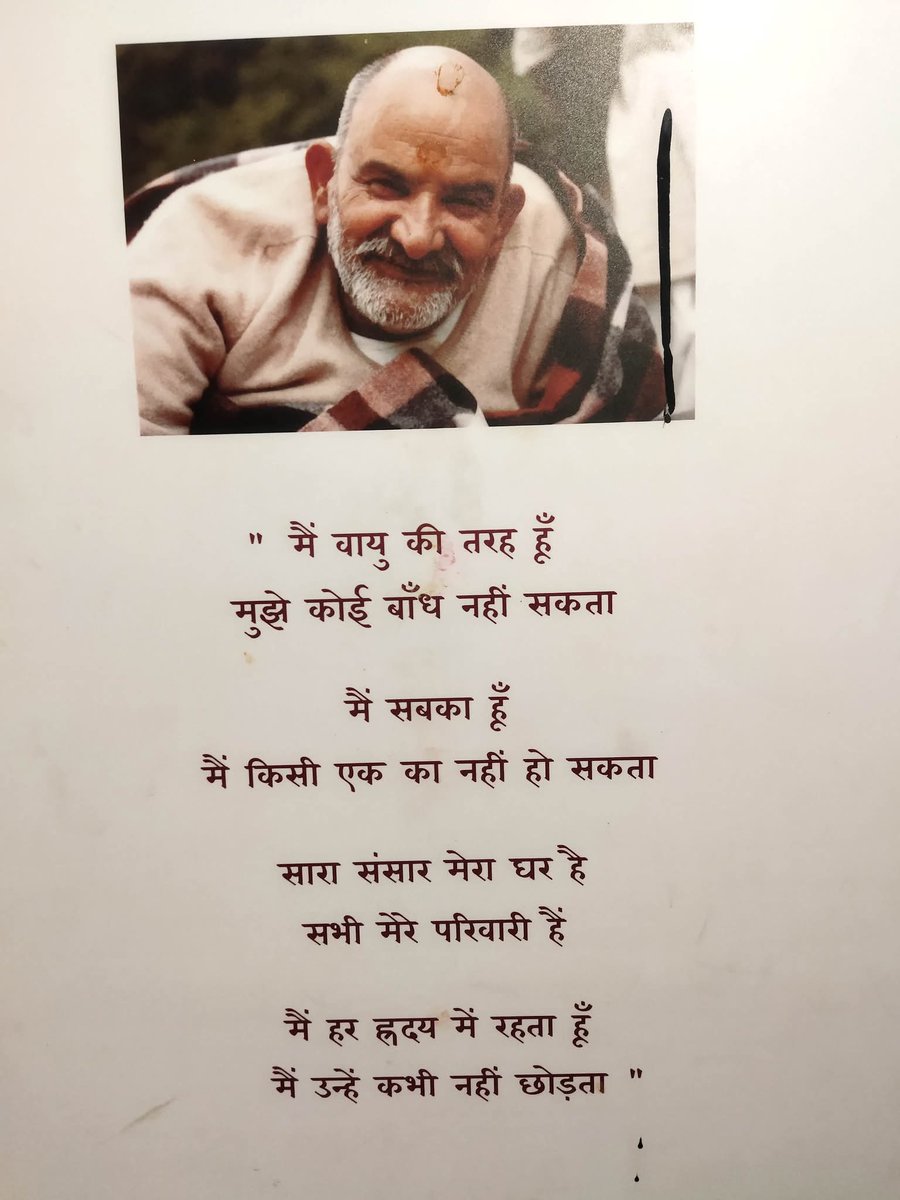 " मैं वायु की तरह हूँ
मुझे कोई बाँध नहीं सकता
मैं सबका हूँ
मैं किसी एक का नहीं हो सकता
सारा संसार मेरा घर है
सभी मेरे परिवारी हैं
मैं हर ह्रदय में रहता हूँ
मैं उन्हें कभी नहीं छोड़ता "